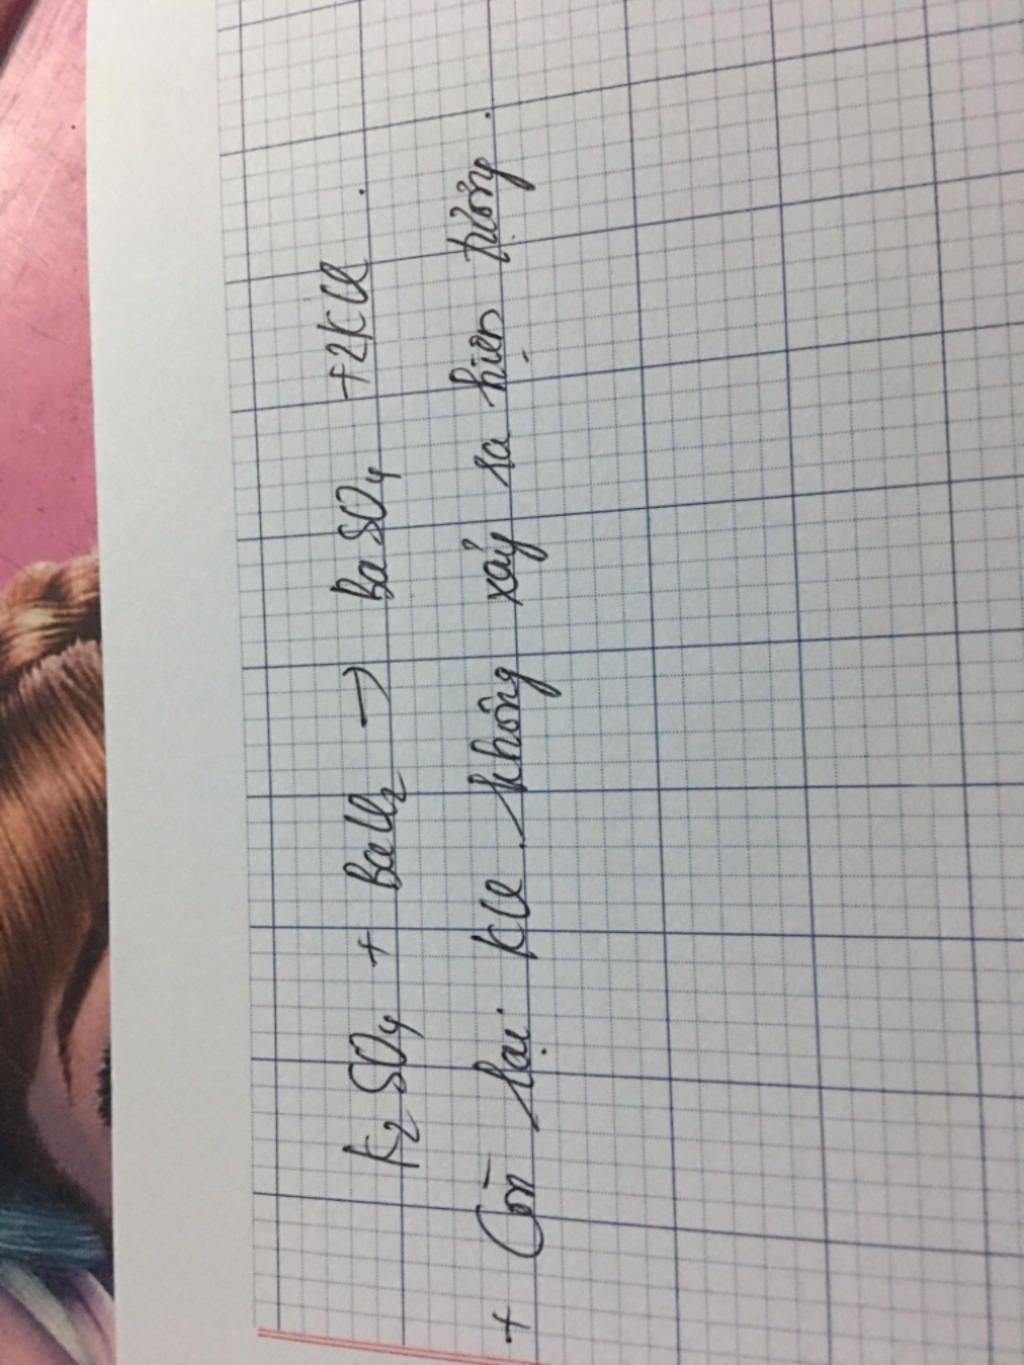 K₂SO₄ + BaCl₂ → BaSO₄ + 2KCl .
+ Còn lại KCl không xảy sa hiện tượng .